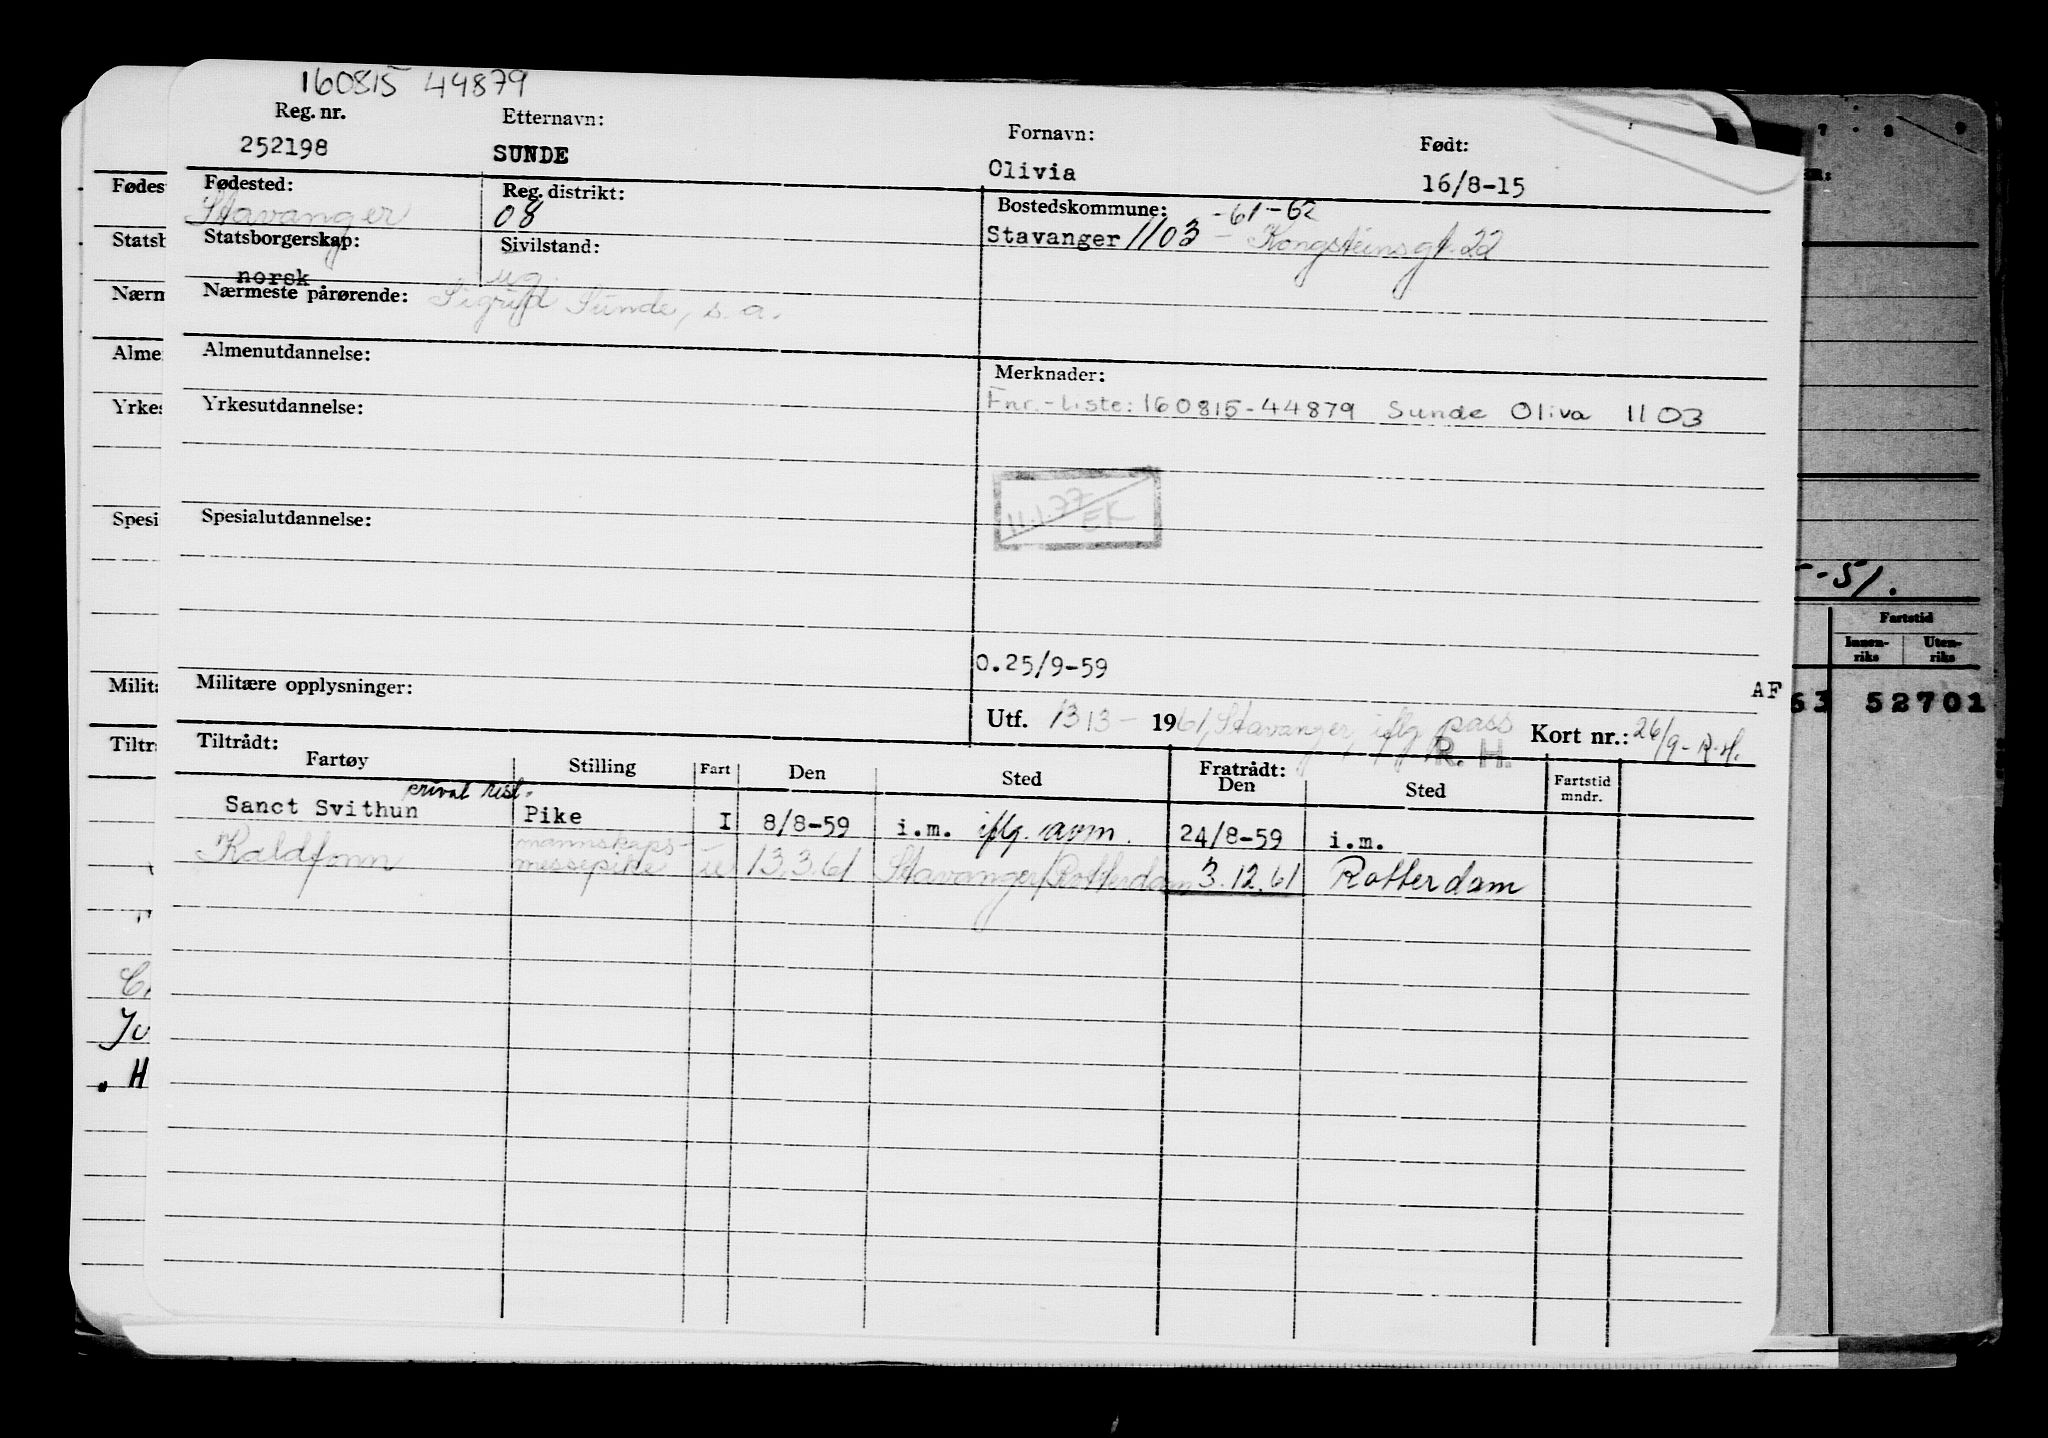 160815 44879
Reg. nr. Etternavn: Fornavn: Født:
252198 SUNDE Olivia 16/8-15
Fødested: Reg. distrikt: Bostedskommune: -61-62
Stavanger 08 Stavanger 1103 - Kongsteinsgt. 22
Statsborgerskap: Sivilstand:
norsk ug.
Nærmeste pårørende: Sigrid Sunde, s.a.
Almenutdannelse: Merknader:
Yrkesutdannelse: Fnr.-liste: 160815-44879 Sunde Oliva 1103
11.1.77 EK
Spesialutdannelse:
O.25/9-59
Militære opplysninger: AF
Utf. 13/3- 1961, Stavanger, iflg pass Kort nr.: 26/9-R.H.
R. H.
Tiltrådt: Fratrådt:
Fartøy Stilling Fart Den Sted Den Sted Fartstid mndr.
Sanct Svithun Pike I 8/8-59 i.m. iflg. 24/8-59 i.m.
Kaldfonn mannskaps-messepike u 13.3.61 Stavanger/Rotterdam 3.12.61 Rotterdam
Fødes
Statsb
Nærm
Alme
Yrkes
Spesi
Milita
Tiltr
H
7 - 8 9
-51.
Fartstid
Innen-riks Uten-riks
63 52701